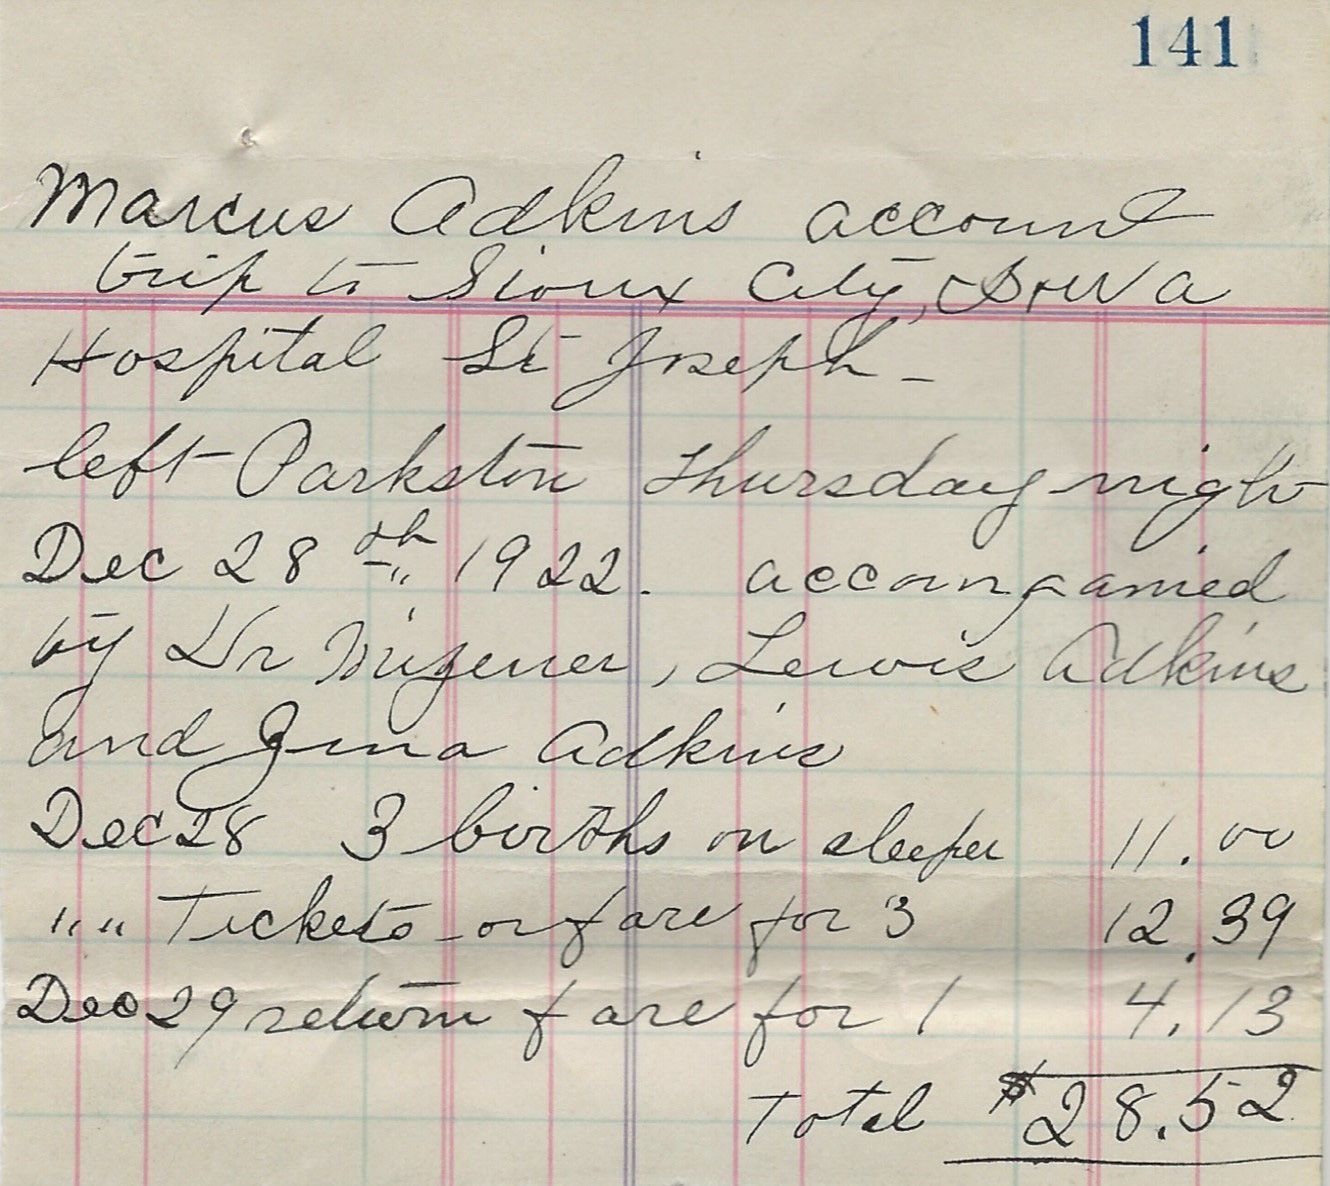 141
Marcus Adkins account
trip to Sioux City, Iowa
Hospital St Joseph -
left Parkston Thursday night
Dec 28th 1922. accompanied
by Dr Mizener, Lewis Adkins
and Adkins
Dec 28 3 births on sleeper 11.00
" " Tickets - or fare for 3 12.39
Dec 29 return fare for 1 4.13
Total $28.52